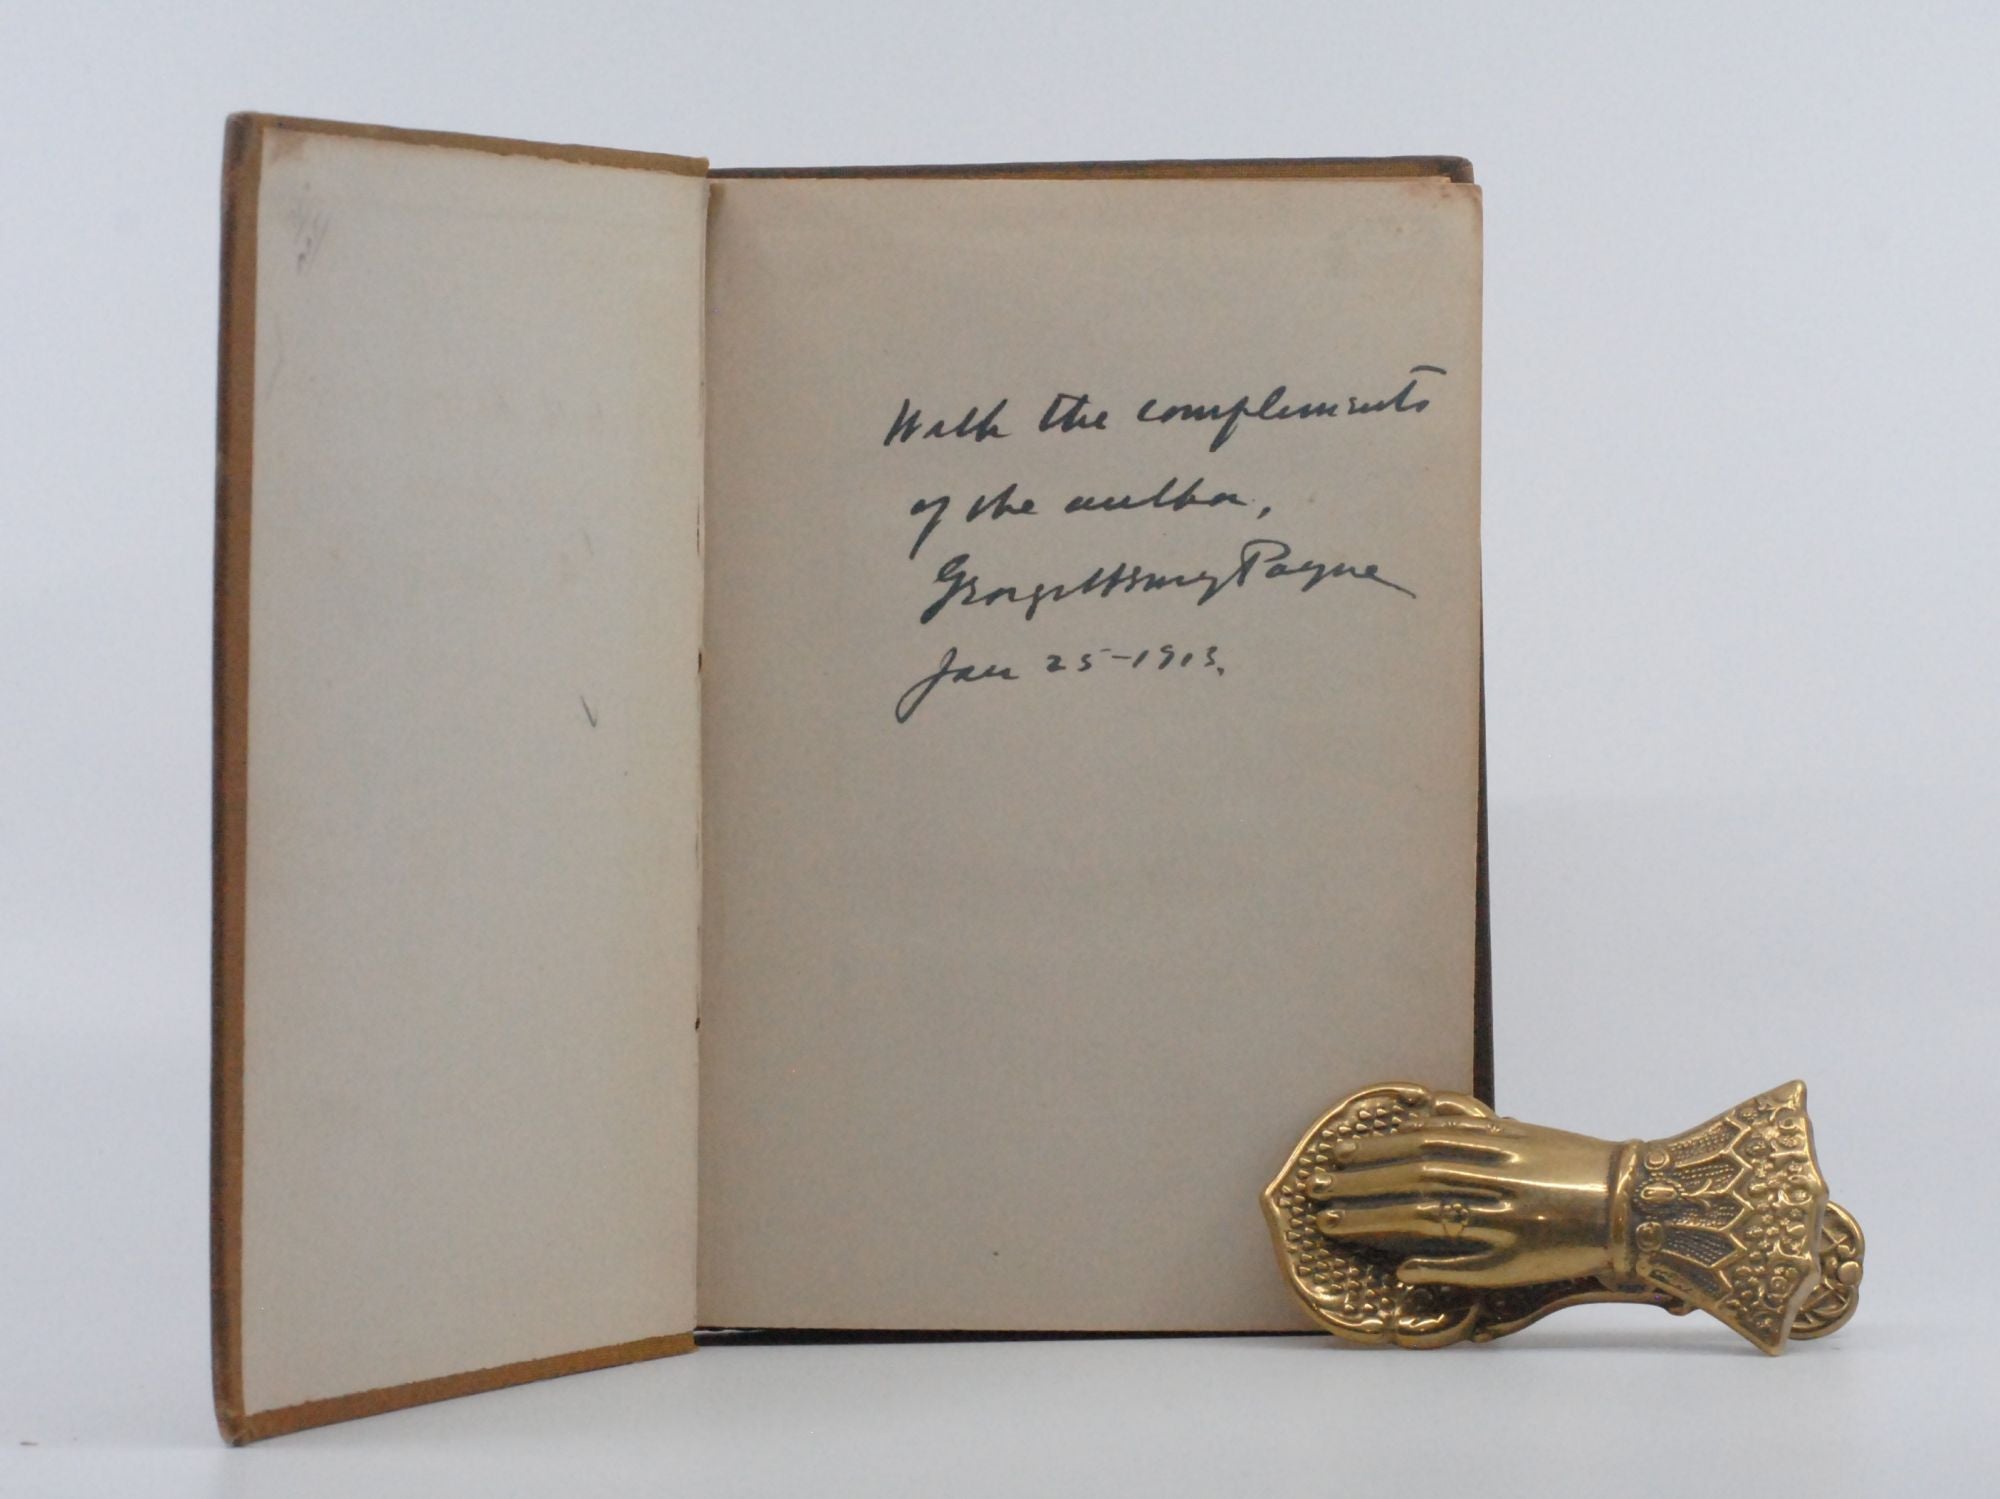 With the complements
of the author,
George Henry Payne
Jan 25-1913.